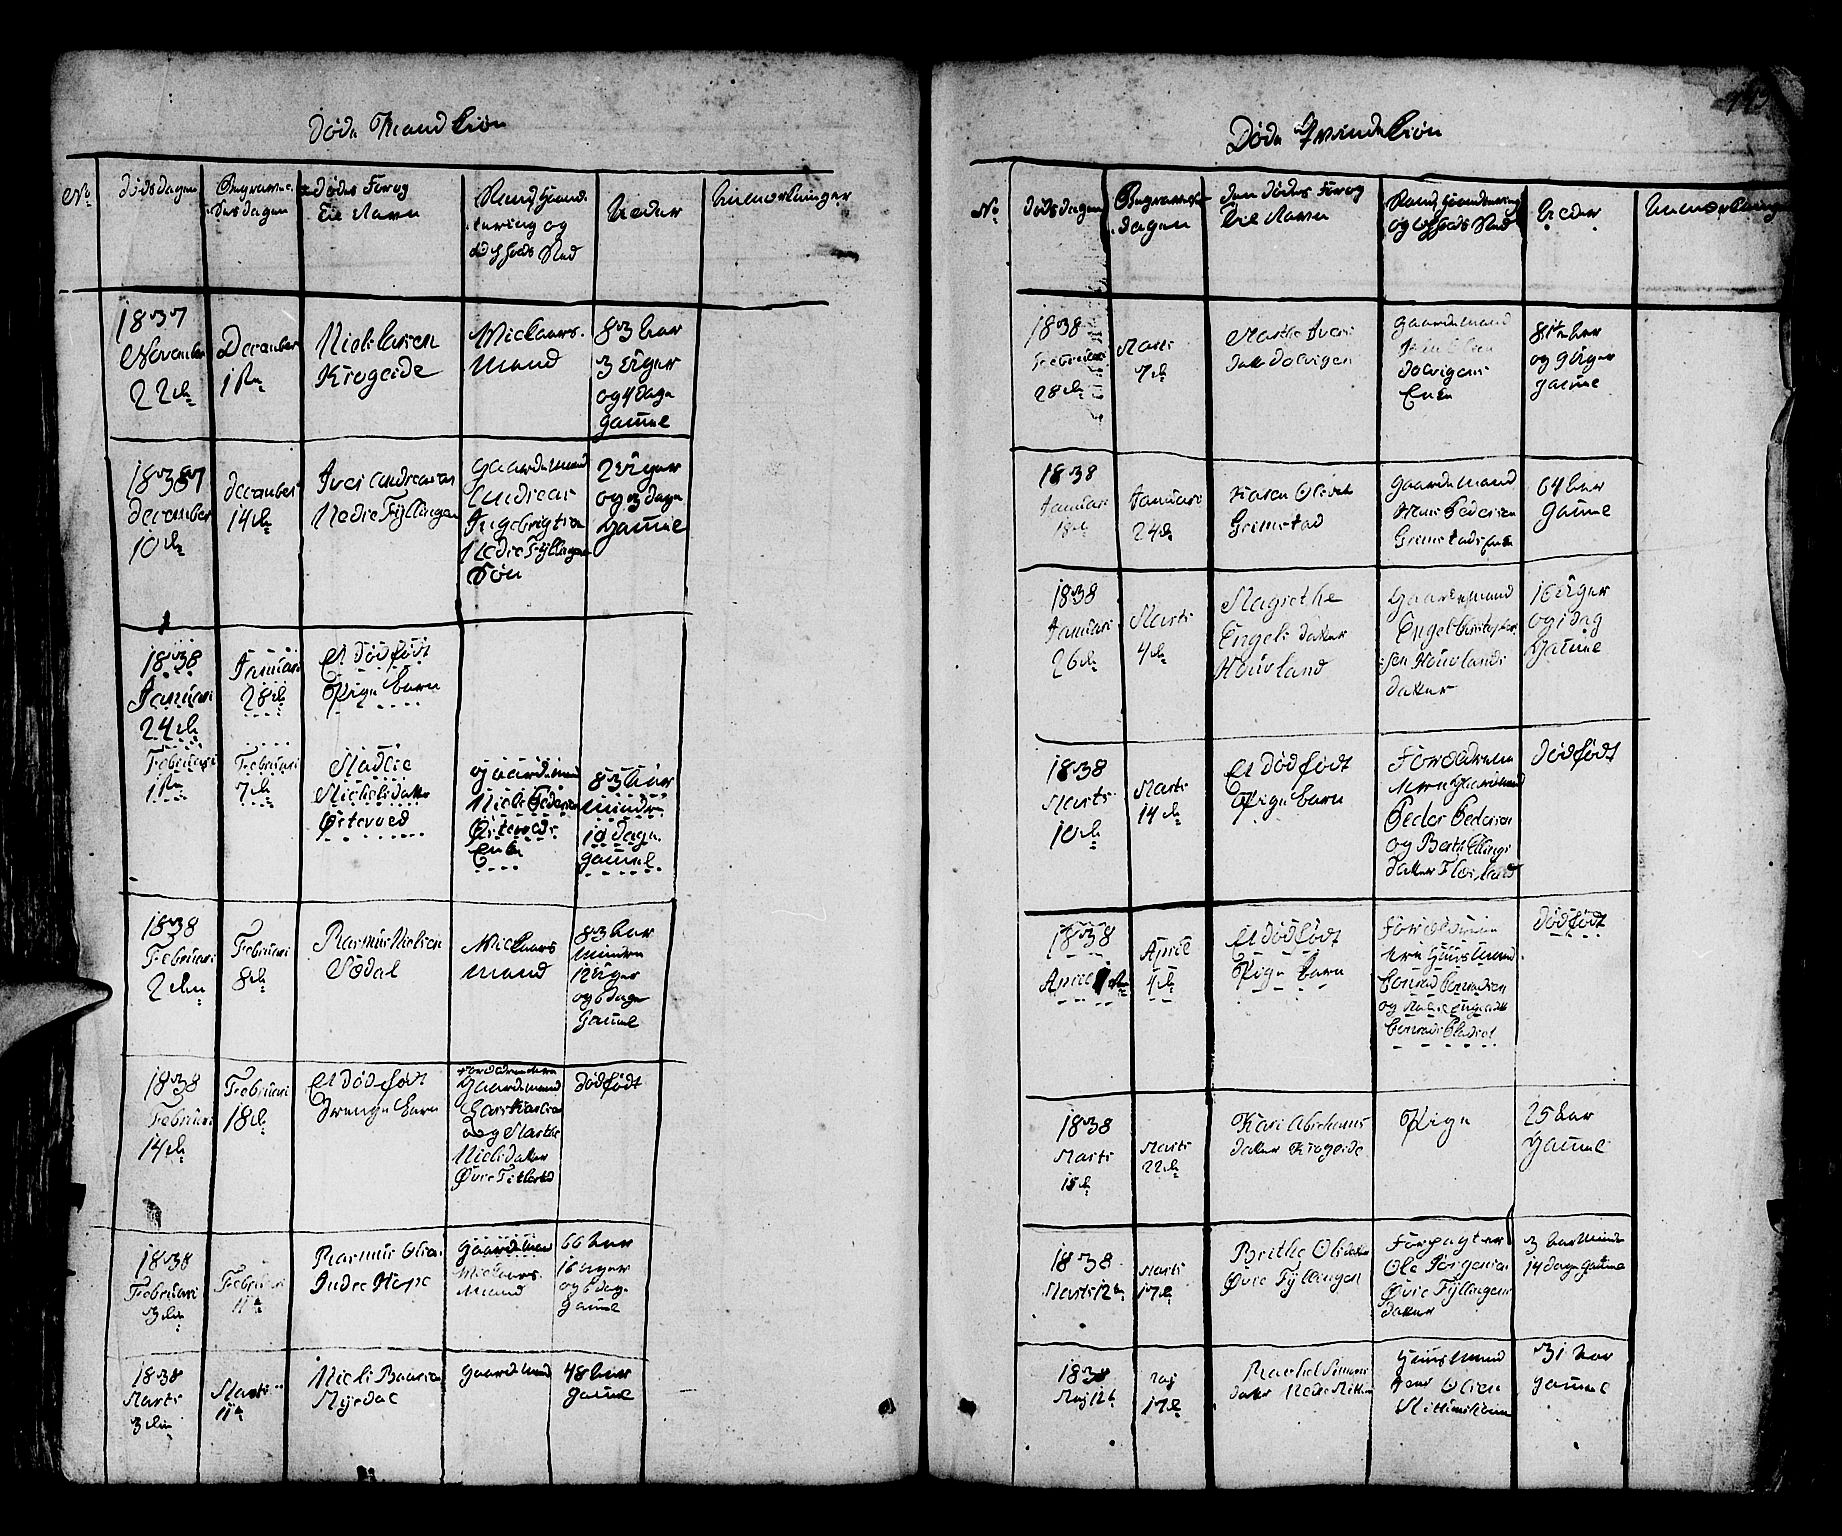 Døde Mandkiøn
No
dødsdagen
Begravel-
sesdagen
dødes For og
Til Navn
Rang Hand-
tering og
Alder
Anmerkninger
1837
November
22de
December
1ste
Niels Larsen
Krogeide
Wielaars-
mand
83 aar
3 Uger
og 4 dage
gamel
1837
december
10de
december
14de
Iver Andreasen
Nedre Fyllingen
Gaardmand
Andreas
Ingebrigtsen
Nedre Fyllingen
Søn
2 Uger
og 3 dage
gamel
1838
Januari
24de
Januari
28de
Et dødfødt
Pige barn
Februari
1ste
Februari
7de
Madlie
Nielsdatter
Østevoed
gaardmand
Niels Pedersen
Østevoeds
Enke
83 aar
mindre
10 dage
gamel
1838
Februari
2den
Februari
8de
Rasmus Nielsen
Sødal
Wielaars
mand
83 aar
mindre
12 Uger
og 6 dage
gamel
1838
Februari
14de
Februari
18de
Et dødfødt
drenge barn
Forældrene
Gaardmand
Lars Larsen
og Marthe
Nielsdatter
Øvre Titlestad
dødfødt
1838
Februari
3den
Februari
11te
Rasmus Olsen
Indre Hope
Wielaars-
mand
66 aar
16 uger
og 6 dage
gamel
1838
Marts
3den
Marts
11te
Niels Baarsen
Myrdal
gaardmand
48 aar
gamel
Døde Qvindekiøn
No
dødsdagen
Begravelses-
dagen
den dødes For og
Til Navn
Rang Handtering
og opholds Sted
Alder
Anmerkninger
1838
Februari
28de
Marts
7de
Marthe Ivers
datter Dolvigen
gaardmand
Dolvigens
Enke
81½ aar
og 9 Uger
gamel
1838
Januari
18de
Januari
24de
Karen Olsdatter
Grimstad
gaardmand
Hans Pedersen
Grimstads Enke
64 aar
gamel
1838
Januari
26de
Marts
4de
Magrethe
Engelsdatter
Houvland
Gaardmand
Engel Christopher-
sen Houvlands
datter
16 Uger
og 1 dag
gamel
1838
Marts
10de
Marts
14de
Et dødfødt
Pige barn
Forældrene
Peder Pedersen
og Berthe Ellings
datter Flæsland
dødfødt
1838
April 1ste
April
4de
Et dødfødt
Pige barn
Forældrene
ere Huusmand
Conrad Conradsen
dødfødt
1838
Marts
15de
Marts
22de
Kari Abrahams
datter Krogeide
Pige
25 aar
gamel
1838
Marts 12te
Marts
17de
Brithe Olsdatter
Øvre Fyllingen
Forpagter
Ole Jørgensen
Øvre Fyllingens
datter
3 aar mindre
14 dage gamel
1838
Maj 12te
Maj
17de
Rachel Simens
datter
Huusmand
31 aar
gamel